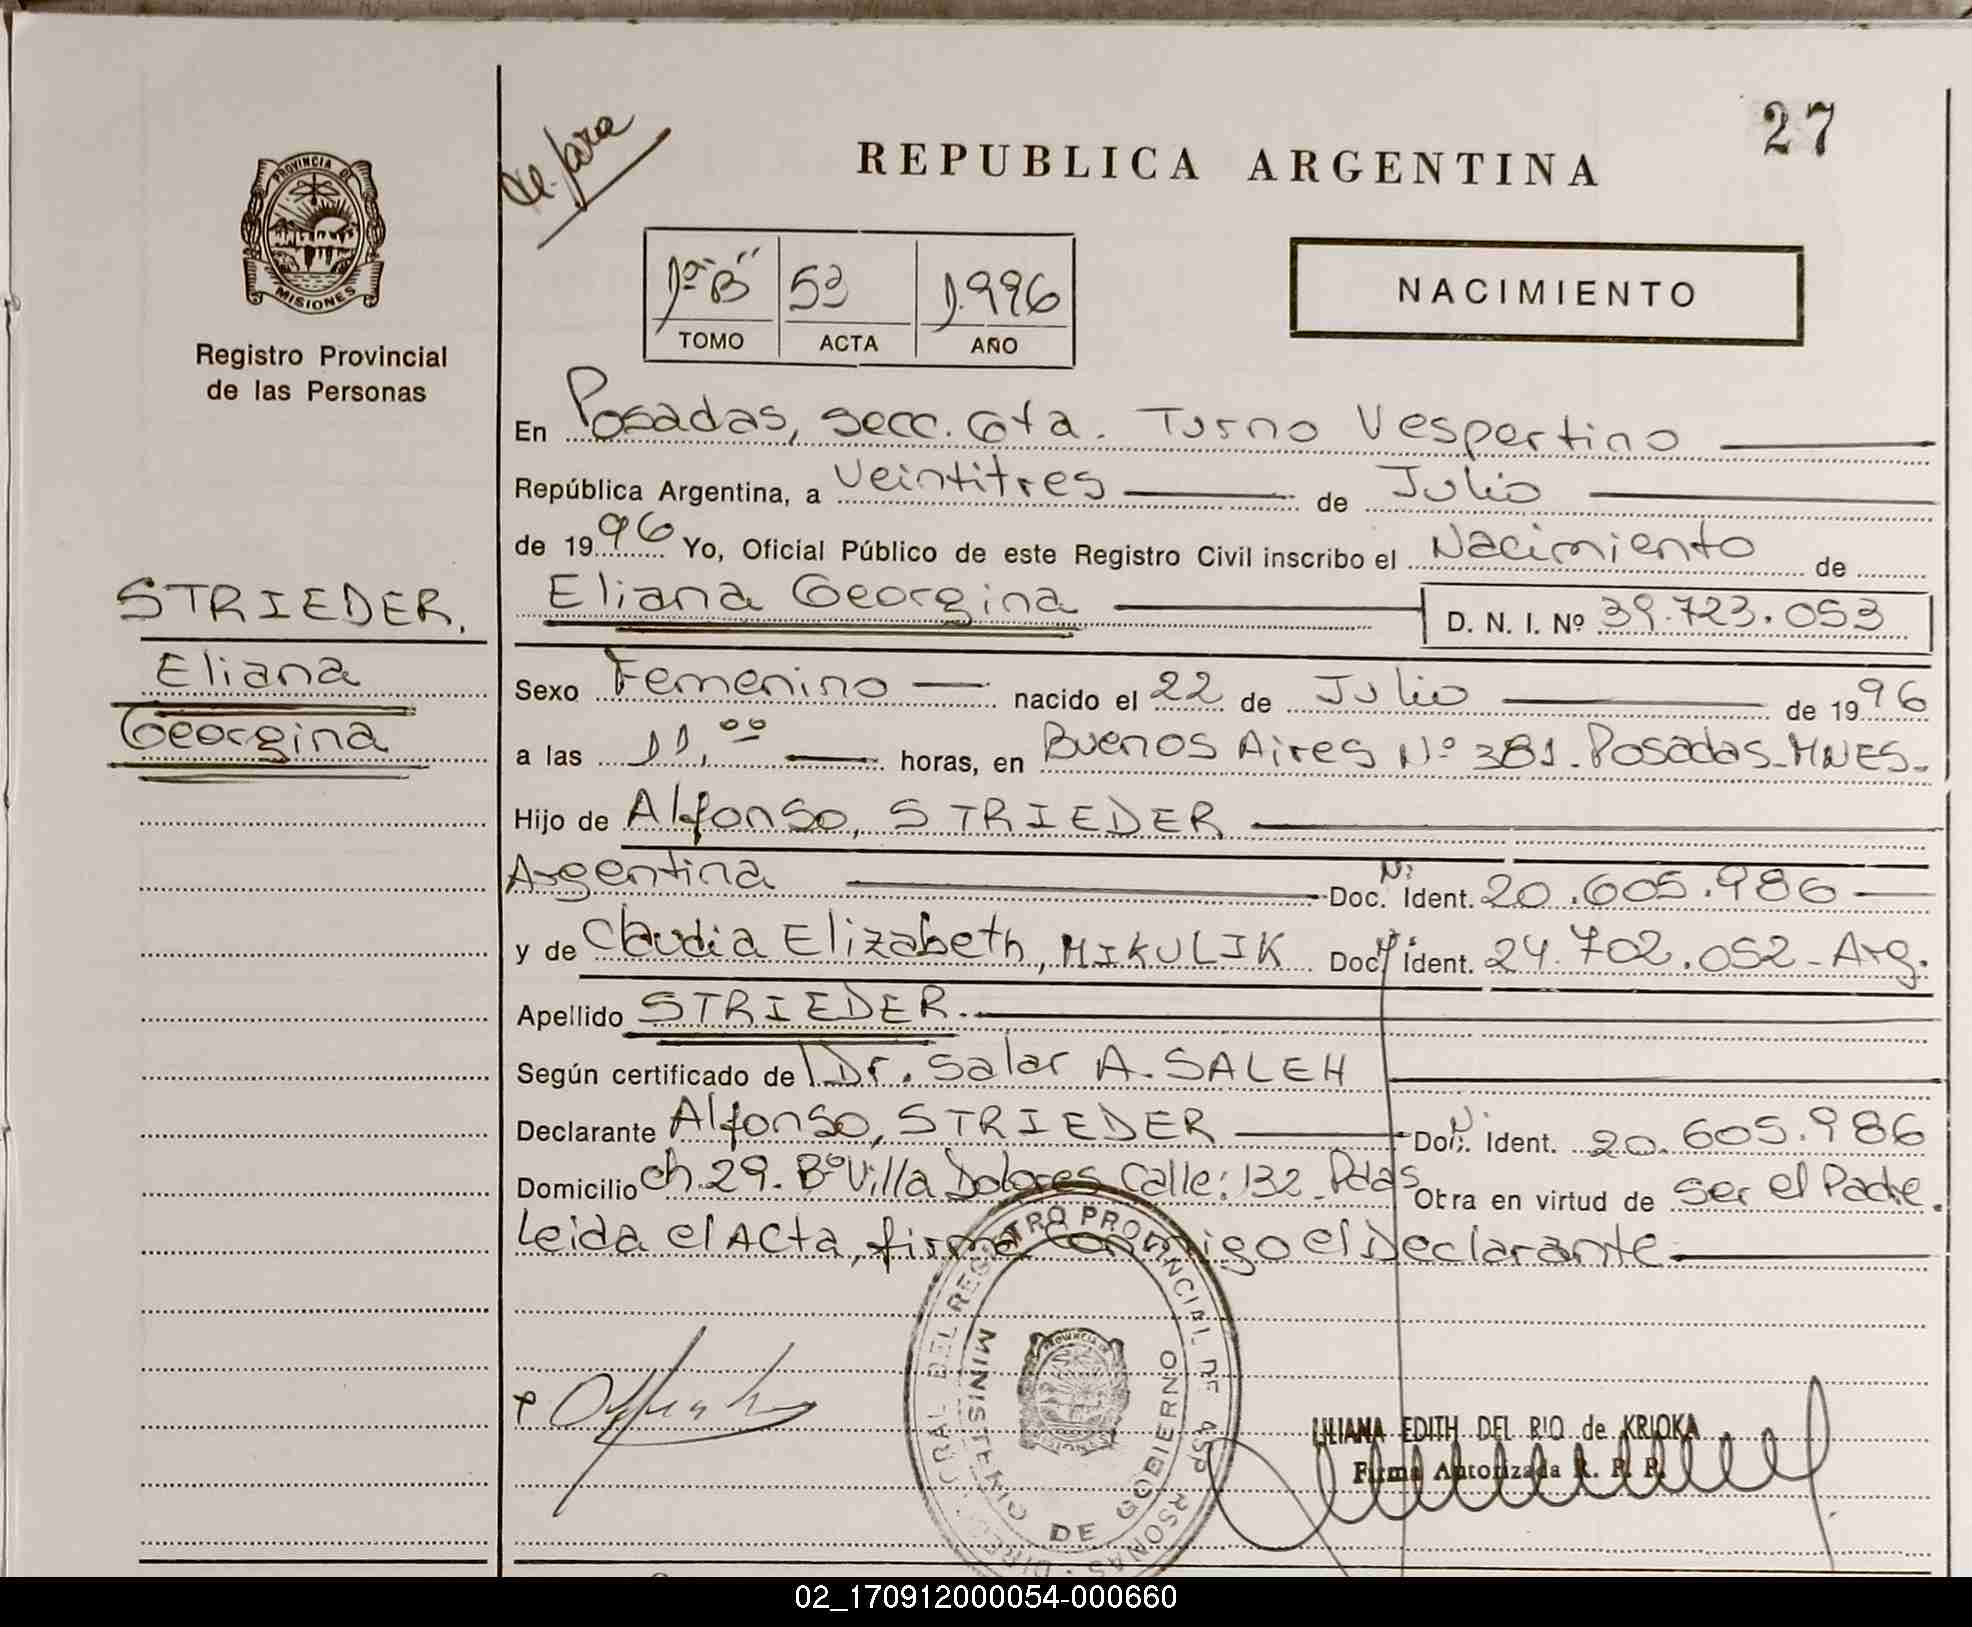 27
REPUBLICA ARGENTINA
PROVINCIA DE
MISIONES
Registro Provincial
de las Personas
1º "B" 53 1.996
TOMO ACTA AÑO
NACIMIENTO
En Posadas, secc. 6ta. Turno Vespertino
República Argentina, a Veintitres de Julio
de 1996 Yo, Oficial Público de este Registro Civil inscribo el Nacimiento de
Eliana Georgina D. N. I. Nº 39.723.053
STRIEDER.
Eliana
Georgina
Sexo Femenino nacido el 22 de Julio de 1996
a las 11,00 horas, en Buenos Aires Nº 381. Posadas-MNES-
Hijo de Alfonso, STRIEDER
Argentina Doc. Nº Ident. 20.605.986
y de Claudia Elizabeth, MIKULIK Doc. Ident. 24.702.052- Arg.
Apellido STRIEDER.
Según certificado de Dr. Salar A. SALEH
Declarante Alfonso, STRIEDER Doc. Ident. 20.605.986
Domicilio ch. 29. Bº Villa Dolores Calle: 132 Pdas Obra en virtud de ser el Padre.
Leida el Acta, firma conmigo el Declarante
REGISTRO PROVINCIAL DE
MINISTERIO DE GOBIERNO
LILIANA EDITH DEL RIO de KRIOKA
Firma Autorizada R. P. P.
02_170912000054-000660